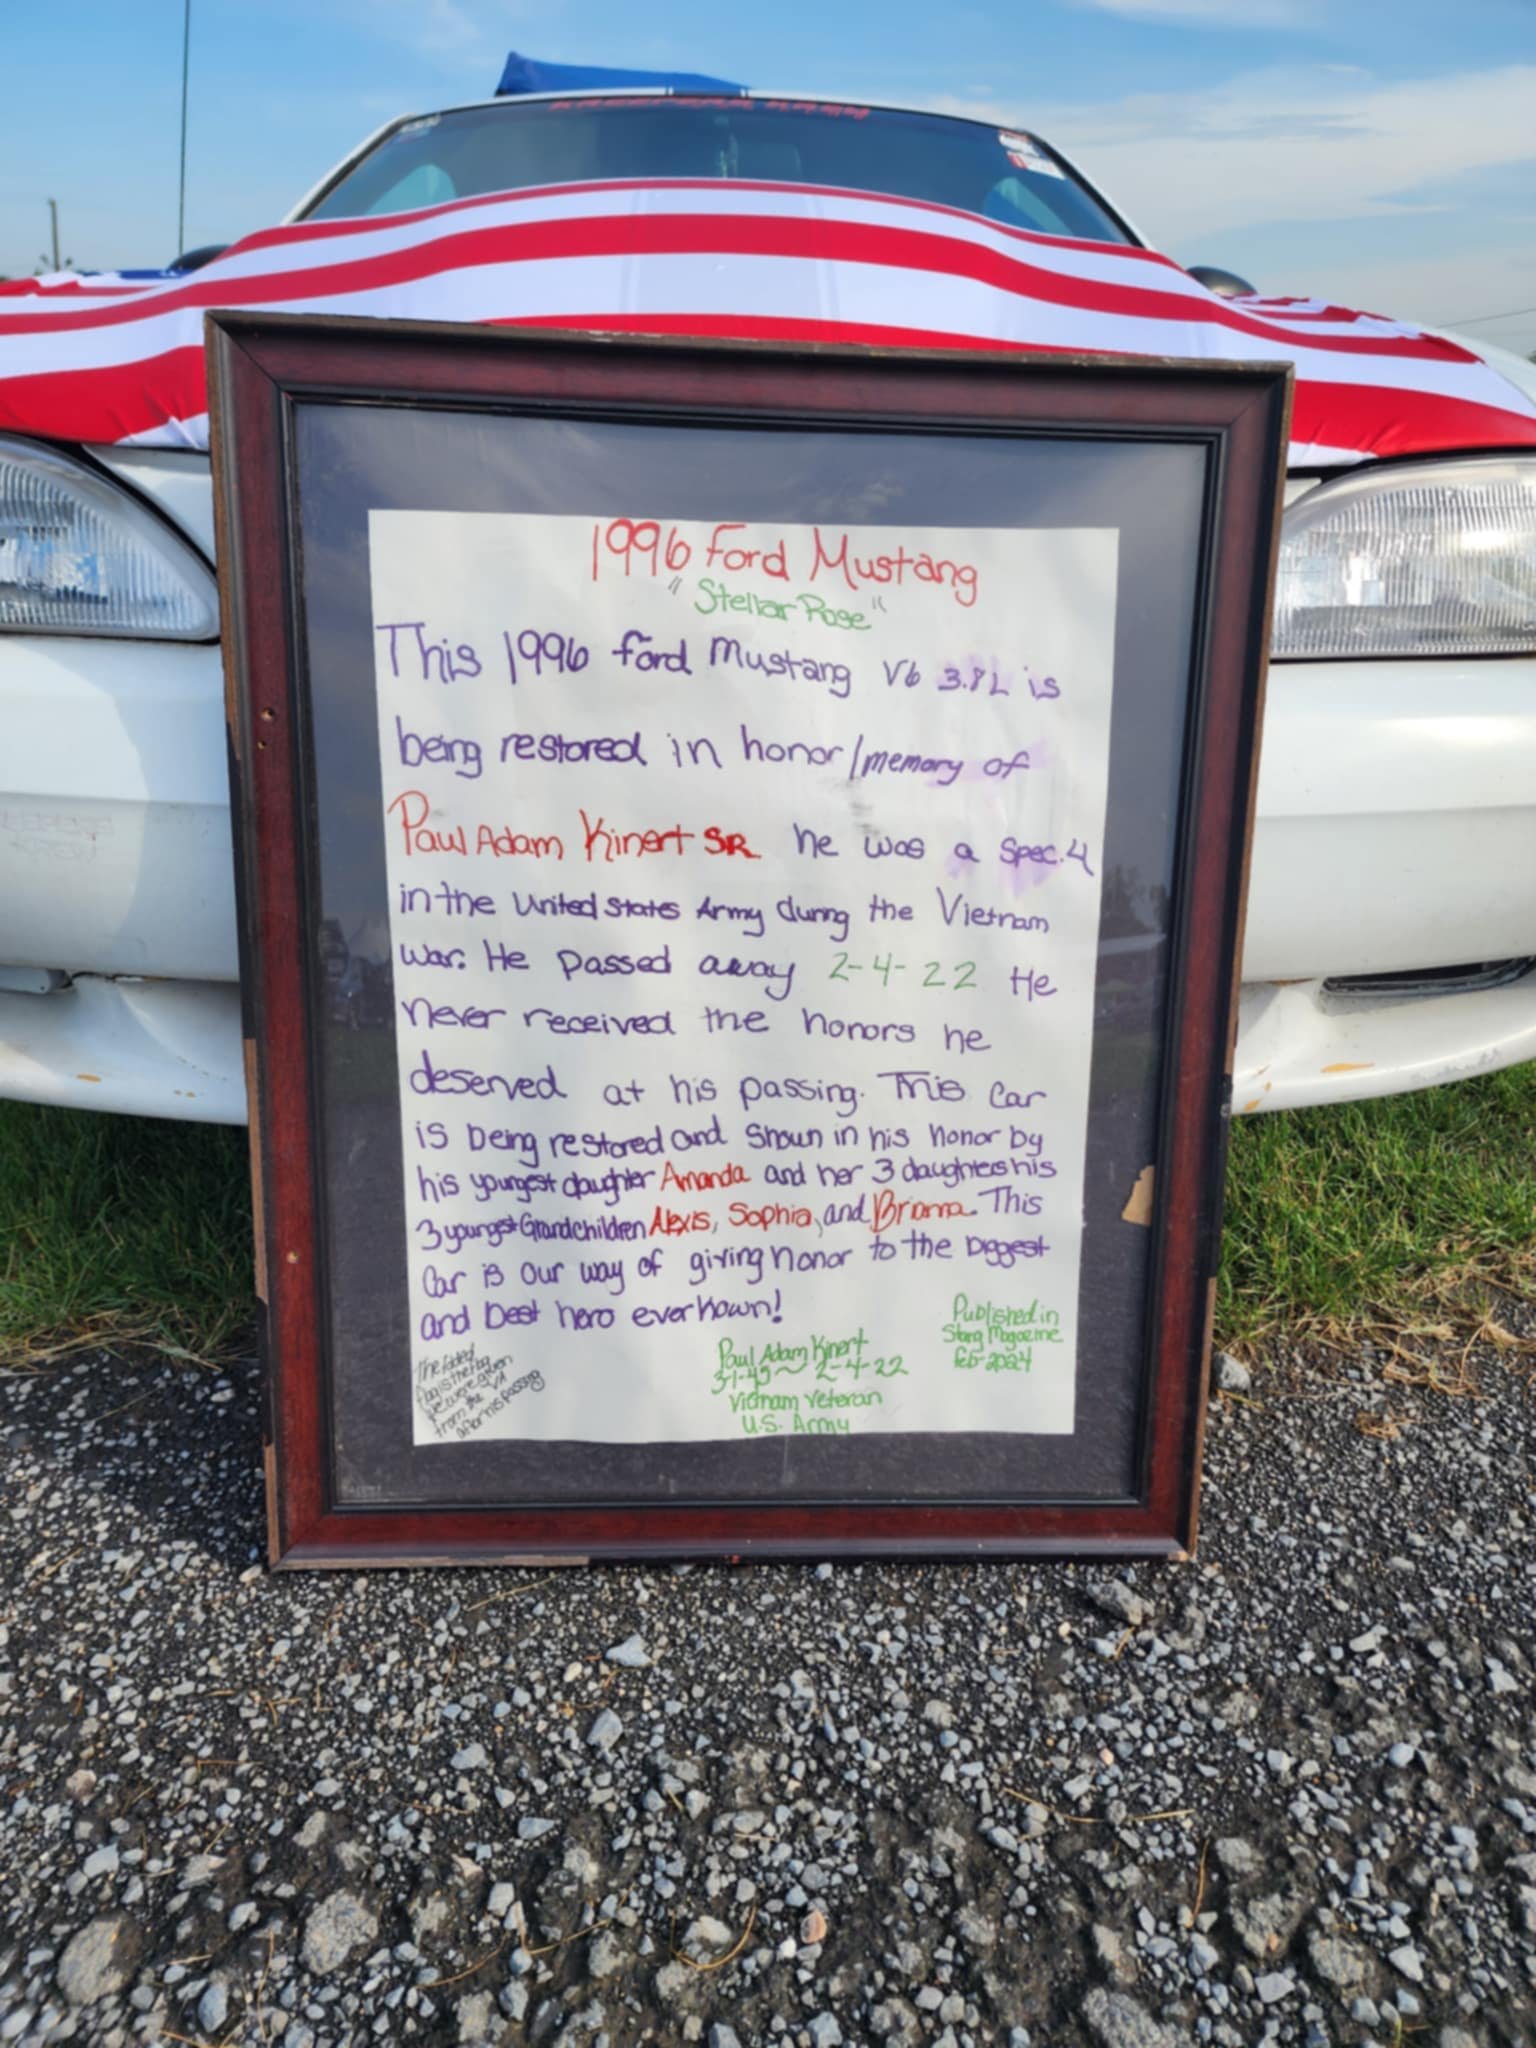 1996 Ford Mustang
"Stellar Rose"
This 1996 Ford Mustang V6 3.8L is
being restored in honor/memory of
Paul Adam Kinert SR he was a Spec.4
in the United States Army during the Vietnam
war. He passed away 2-4-22 He
never received the honors he
deserved at his passing. This Car
is being restored and Shown in his honor by
his youngest daughter Amanda and her 3 daughters his
3 youngest Grandchildren Alexis, Sophia, and Brianna. This
Car is our way of giving honor to the biggest
and best hero ever known!
The folded
flag is the flag
we were given
from the VA
after his passing
Paul Adam Kinert
2-4-22
Vietnam Veteran
U.S. Army
Published in
Stang Magazine
Feb-2024